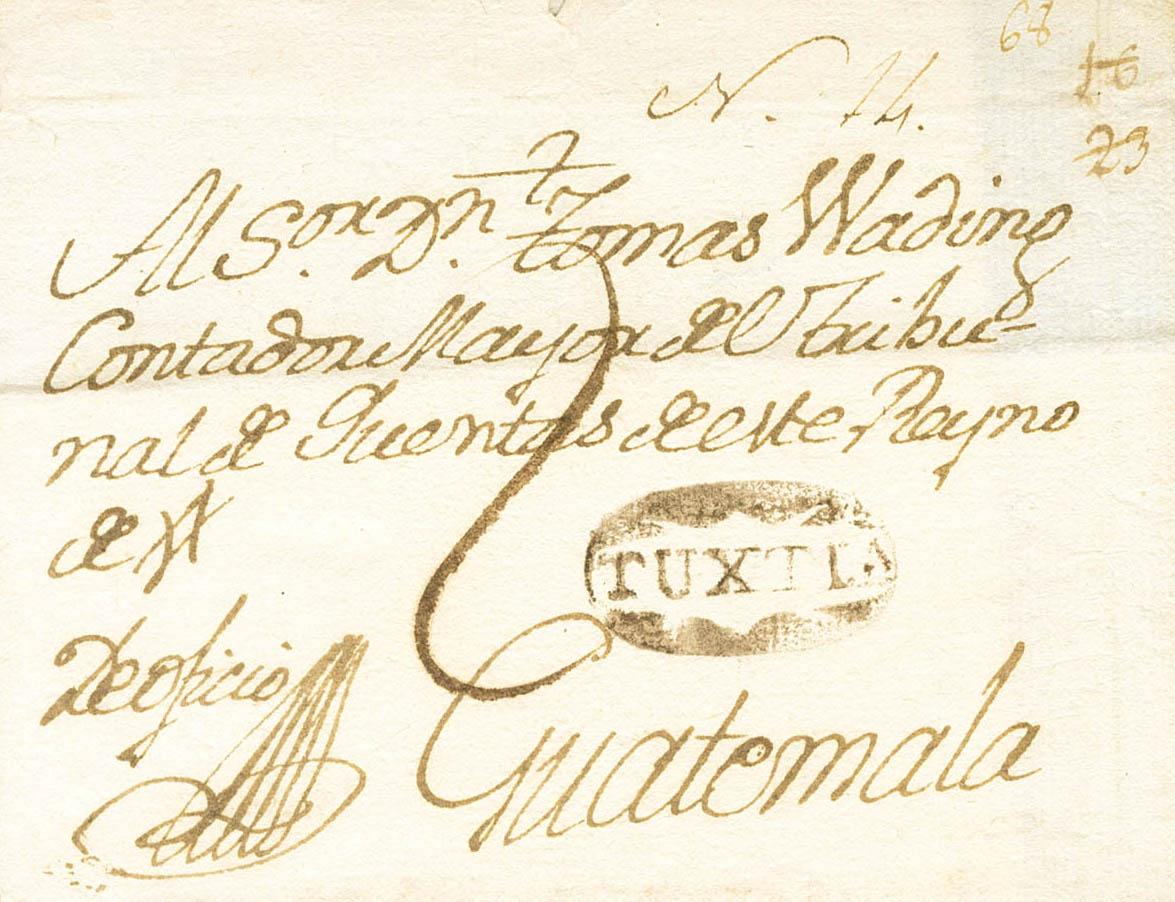 68
16
23
N. 14.
Al S.or D.n tomas Wading
Contador Mayor del tribu-
nal de Quentas de este Reyno
de
TUXTLA
De oficio
Guatemala